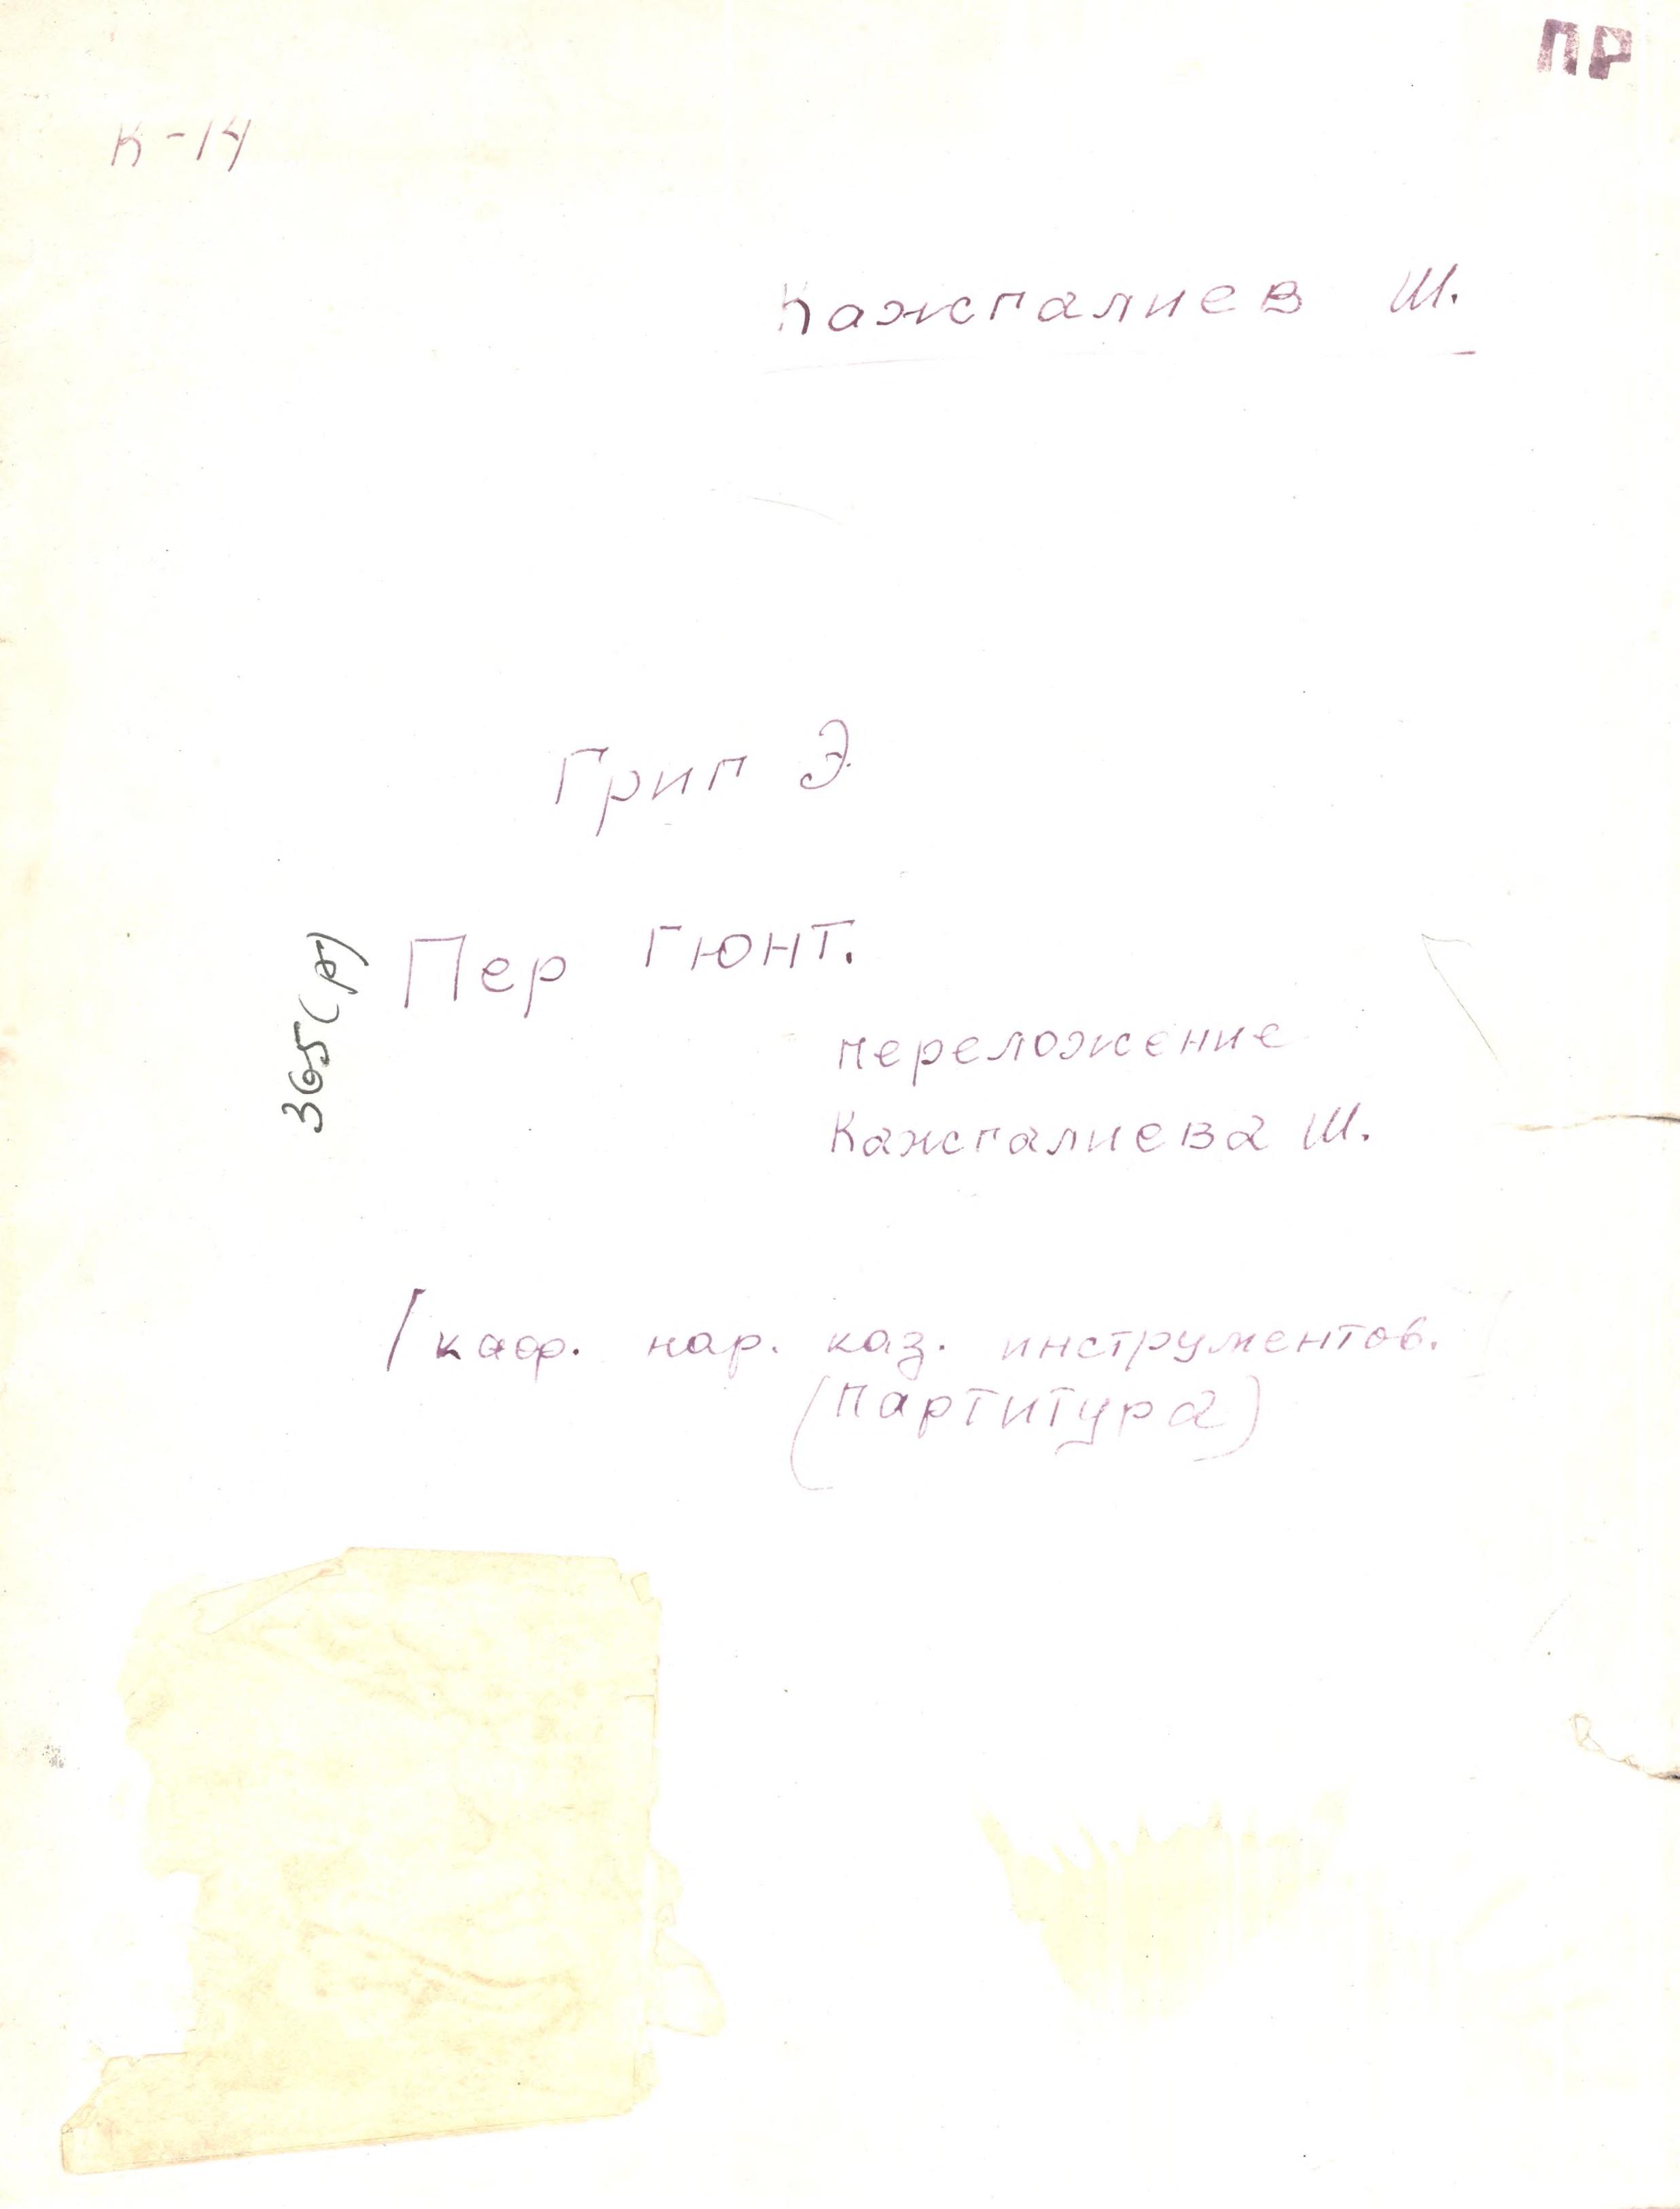 ПР
К-14
Кажгалиев Ш.
Григ Э.
Пер Гюнт.
365(р)
переложение
Кажгалиева Ш.
/каф. нар. каз. инструментов.
(партитура)